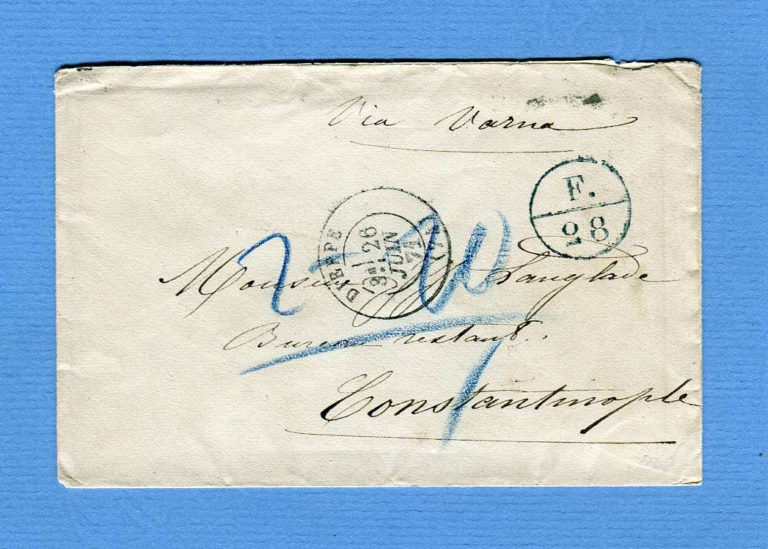 Via Varna
F.
28
DIEPPE
3E/ 26
JUIN
74
Monsieur Langlade
Bureau restant.
Constantinople